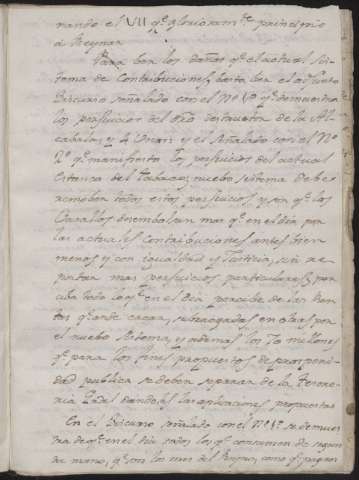 nando el VII q.e gloriosam.te principió
á Reynar.
Para ber los daños q.e el actual sis-
tema de Contribuciones, basta ber el adjunto
Discurso señalado con el Nº 1º q.e demuestra
los perjuicios del otro
cabalas, y 4 Unos, y el señalado con el Nº
2º q.e manifiesta los perjuicios del actual
Estanco del Tabaco; nuebo sistema debe
remober todos estos perjuicios, y sin q.e los
Vasallos desembolsen mas q.e en el dia por
las actuales Contribuciones antes bien
menos, y con igualdad y Justicia, sin re-
portar mas perjuicios particulares, per-
ciba todo lo q.e en el dia percibe de las Ren-
tas q.e ande cesar, subrogadas en otras por
el nuebo sistema, y ademas los 70 millones
q.e para los fines propuestos de prosperi-
dad publica se deben separar de la Tesore-
ria Gral dandoles las aplicaciones propuestas
En el Discurso señalado con el Nº 1º se demues-
tra q.e en el dia todos los q.e consumen de segun-
da mano, q.e son los mas del Reyno, como q.e pagan